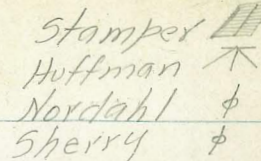 Stamper
Huffman
Nordahl ϕ
Sherry ϕ